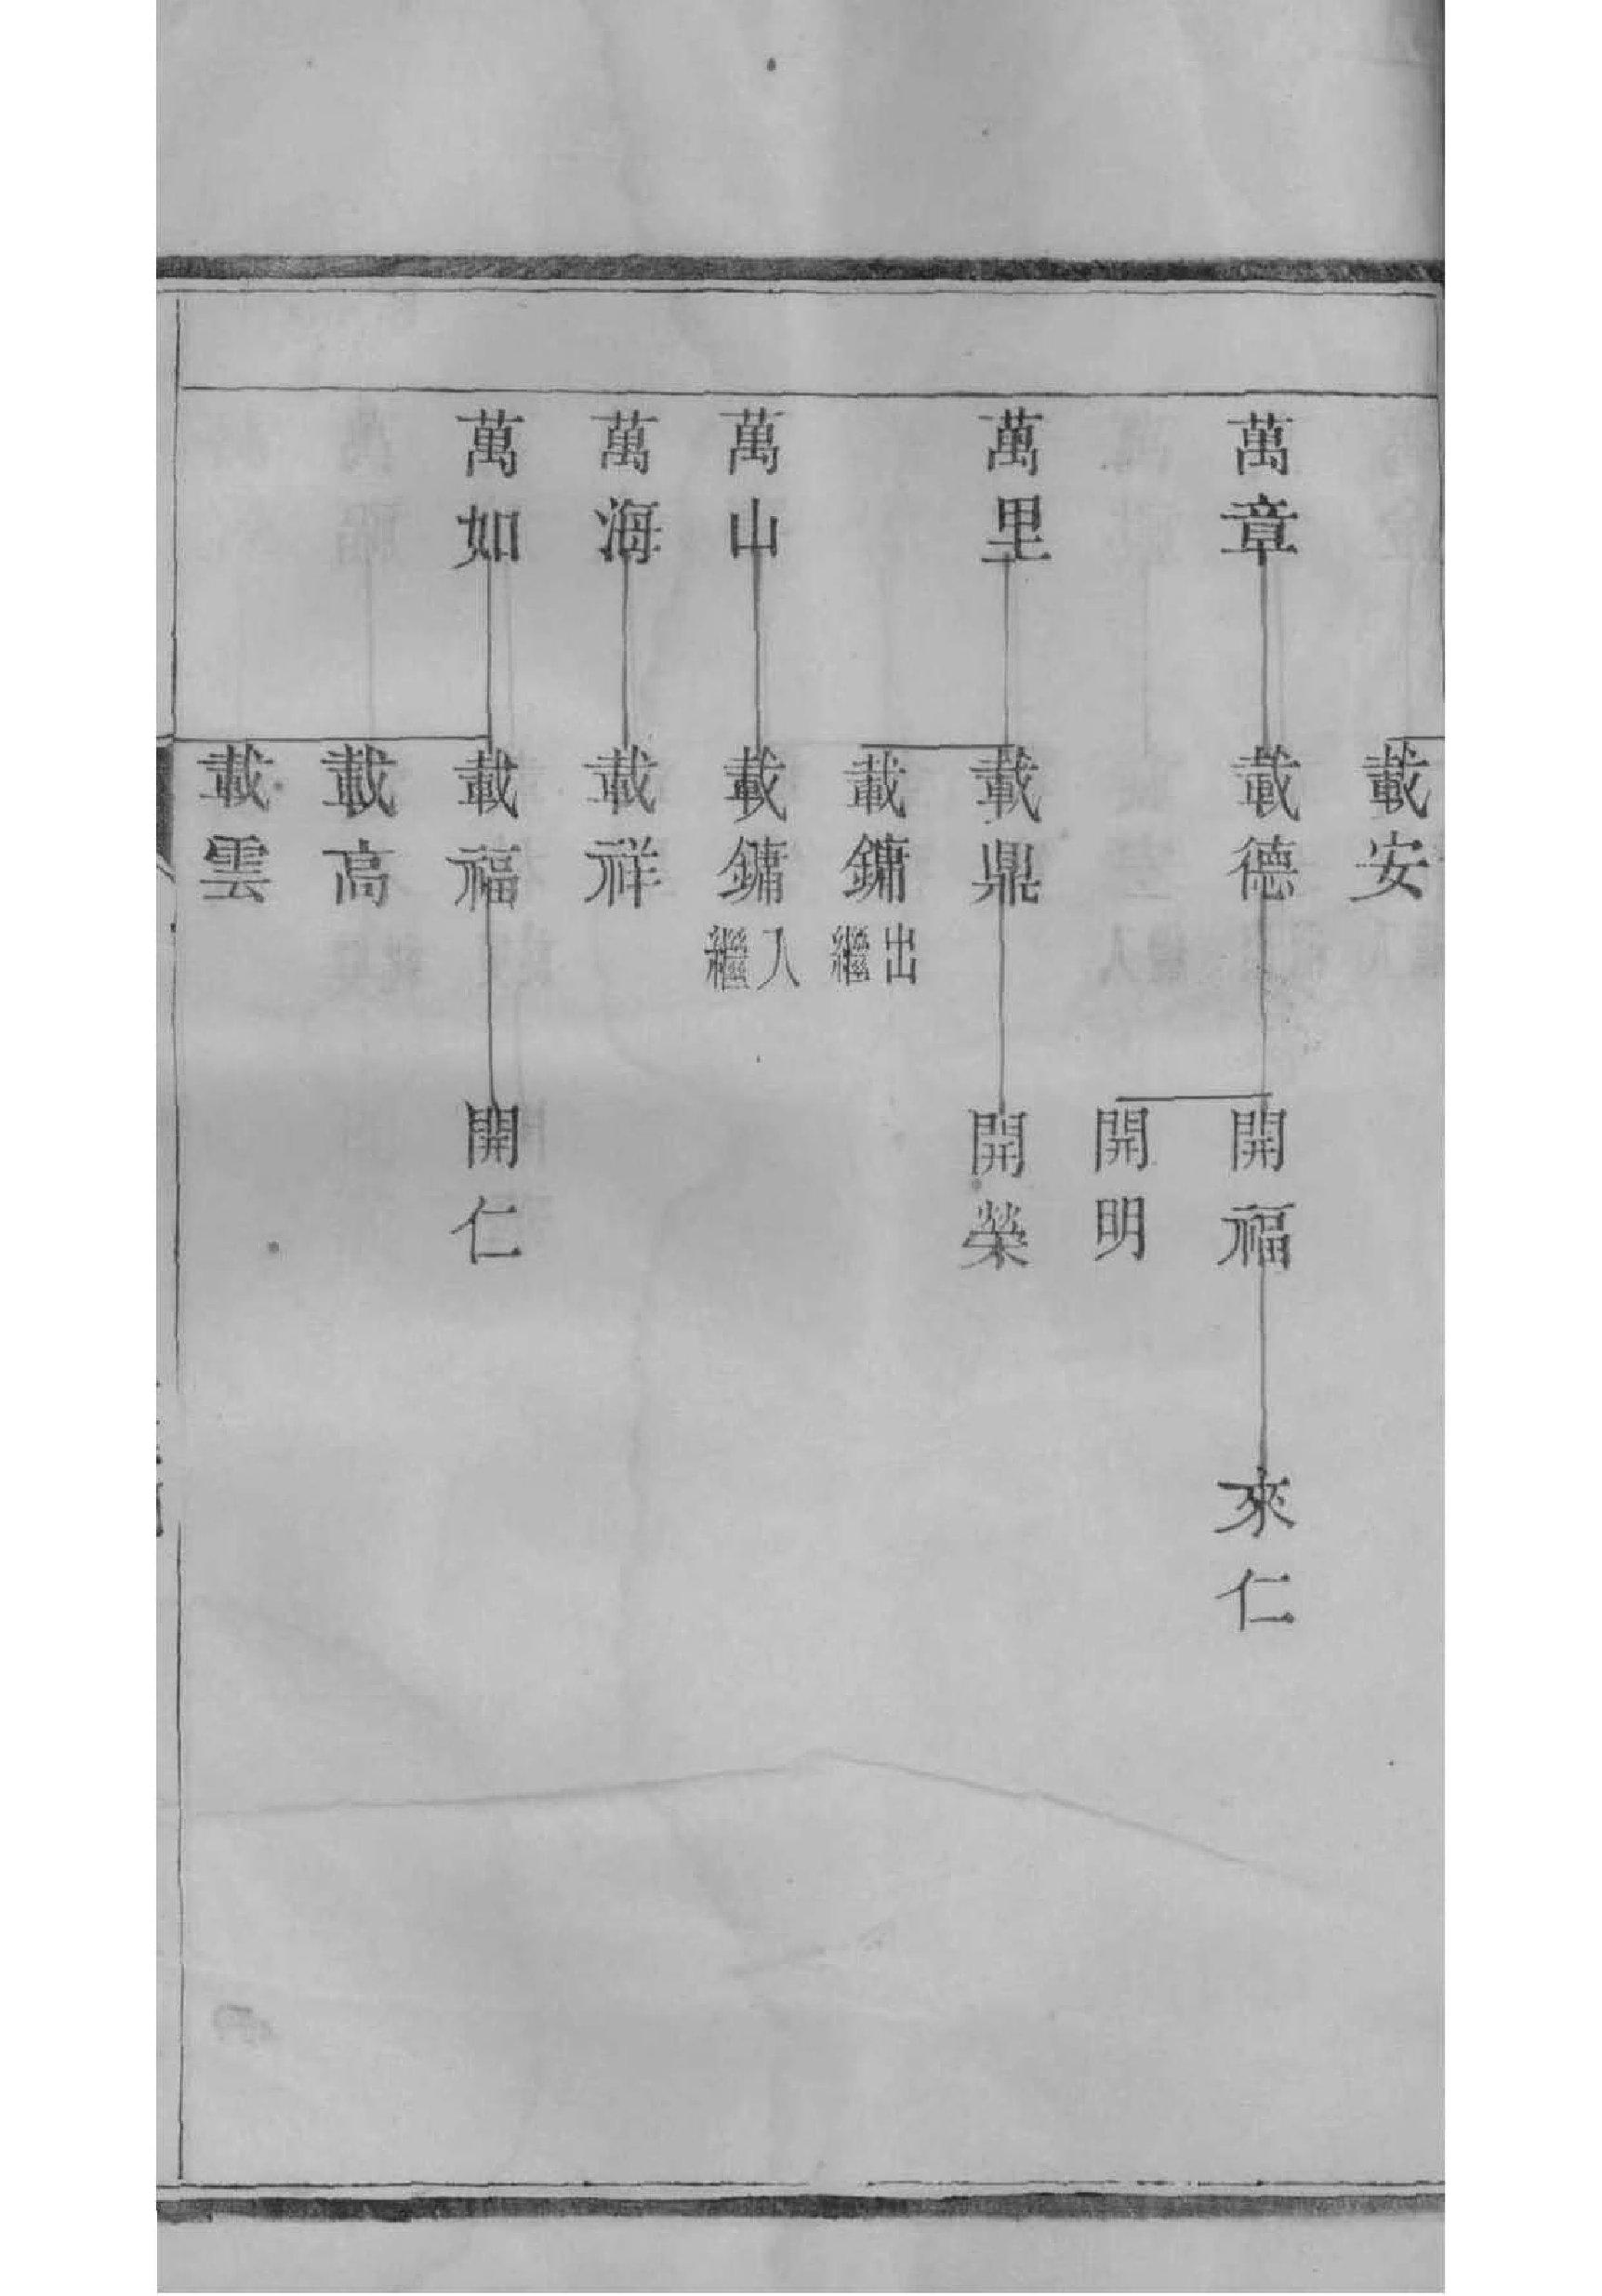 載安
萬章
載德
開福
來仁
開明
萬里
載鼎
開榮
載鏞
出繼
萬山
載鏞
入繼
萬海
載祥
萬如
載福
開仁
載高
載雲